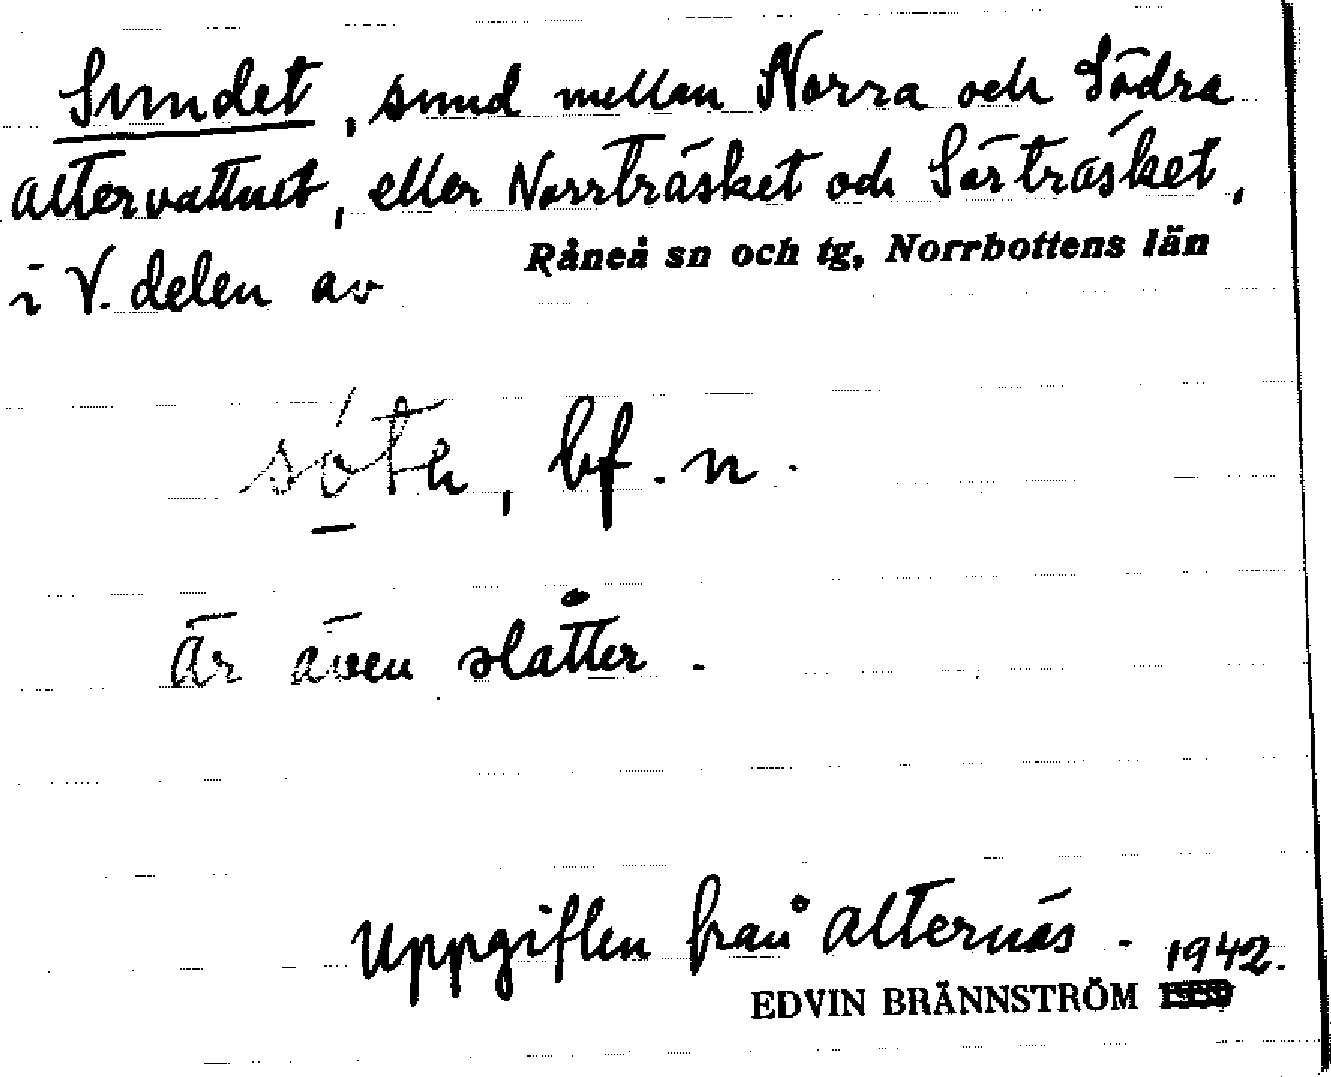 Sundet, sund mellan Norra och Södra
Altervattnet, eller Norrträsket och Sörträsket,
i V. delen av Råneå sn och tg, Norrbottens län
bf. n.
Är även slåtter.
Uppgiften från Alternäs. 1942.
EDVIN BRÄNNSTRÖM